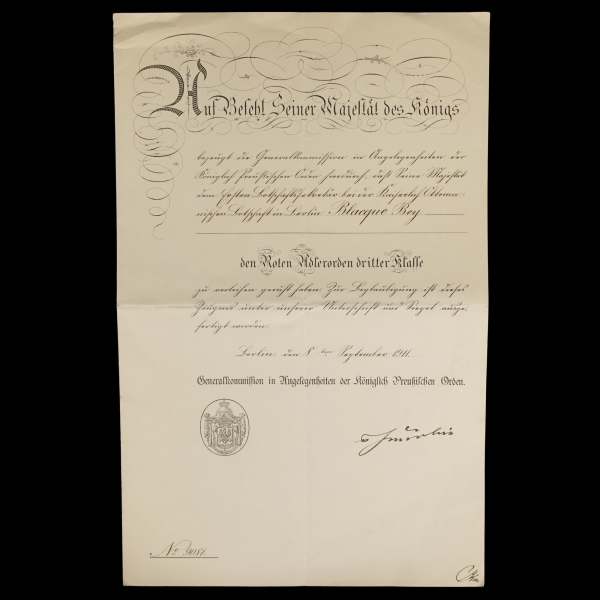 Auf Befehl Seiner Majestät des Königs
bezeugt die Generalkommission in Angelegenheiten der
Königlich Preußischen Orden hierdurch, daß Seine Majestät
dem Ersten Botschaftssekretär bei der Kaiserlich Ottoma-
nischen Botschaft in Berlin Blacque Bey
den Roten Adlerorden dritter Klasse
zu verleihen geruht haben. Zur Beglaubigung ist dieses
Zeugnis unter unserer Unterschrift und Siegel ausge-
fertigt worden.
Berlin, den 8 ten September 1911.
Generalkommission in Angelegenheiten der Königlich Preußischen Orden.